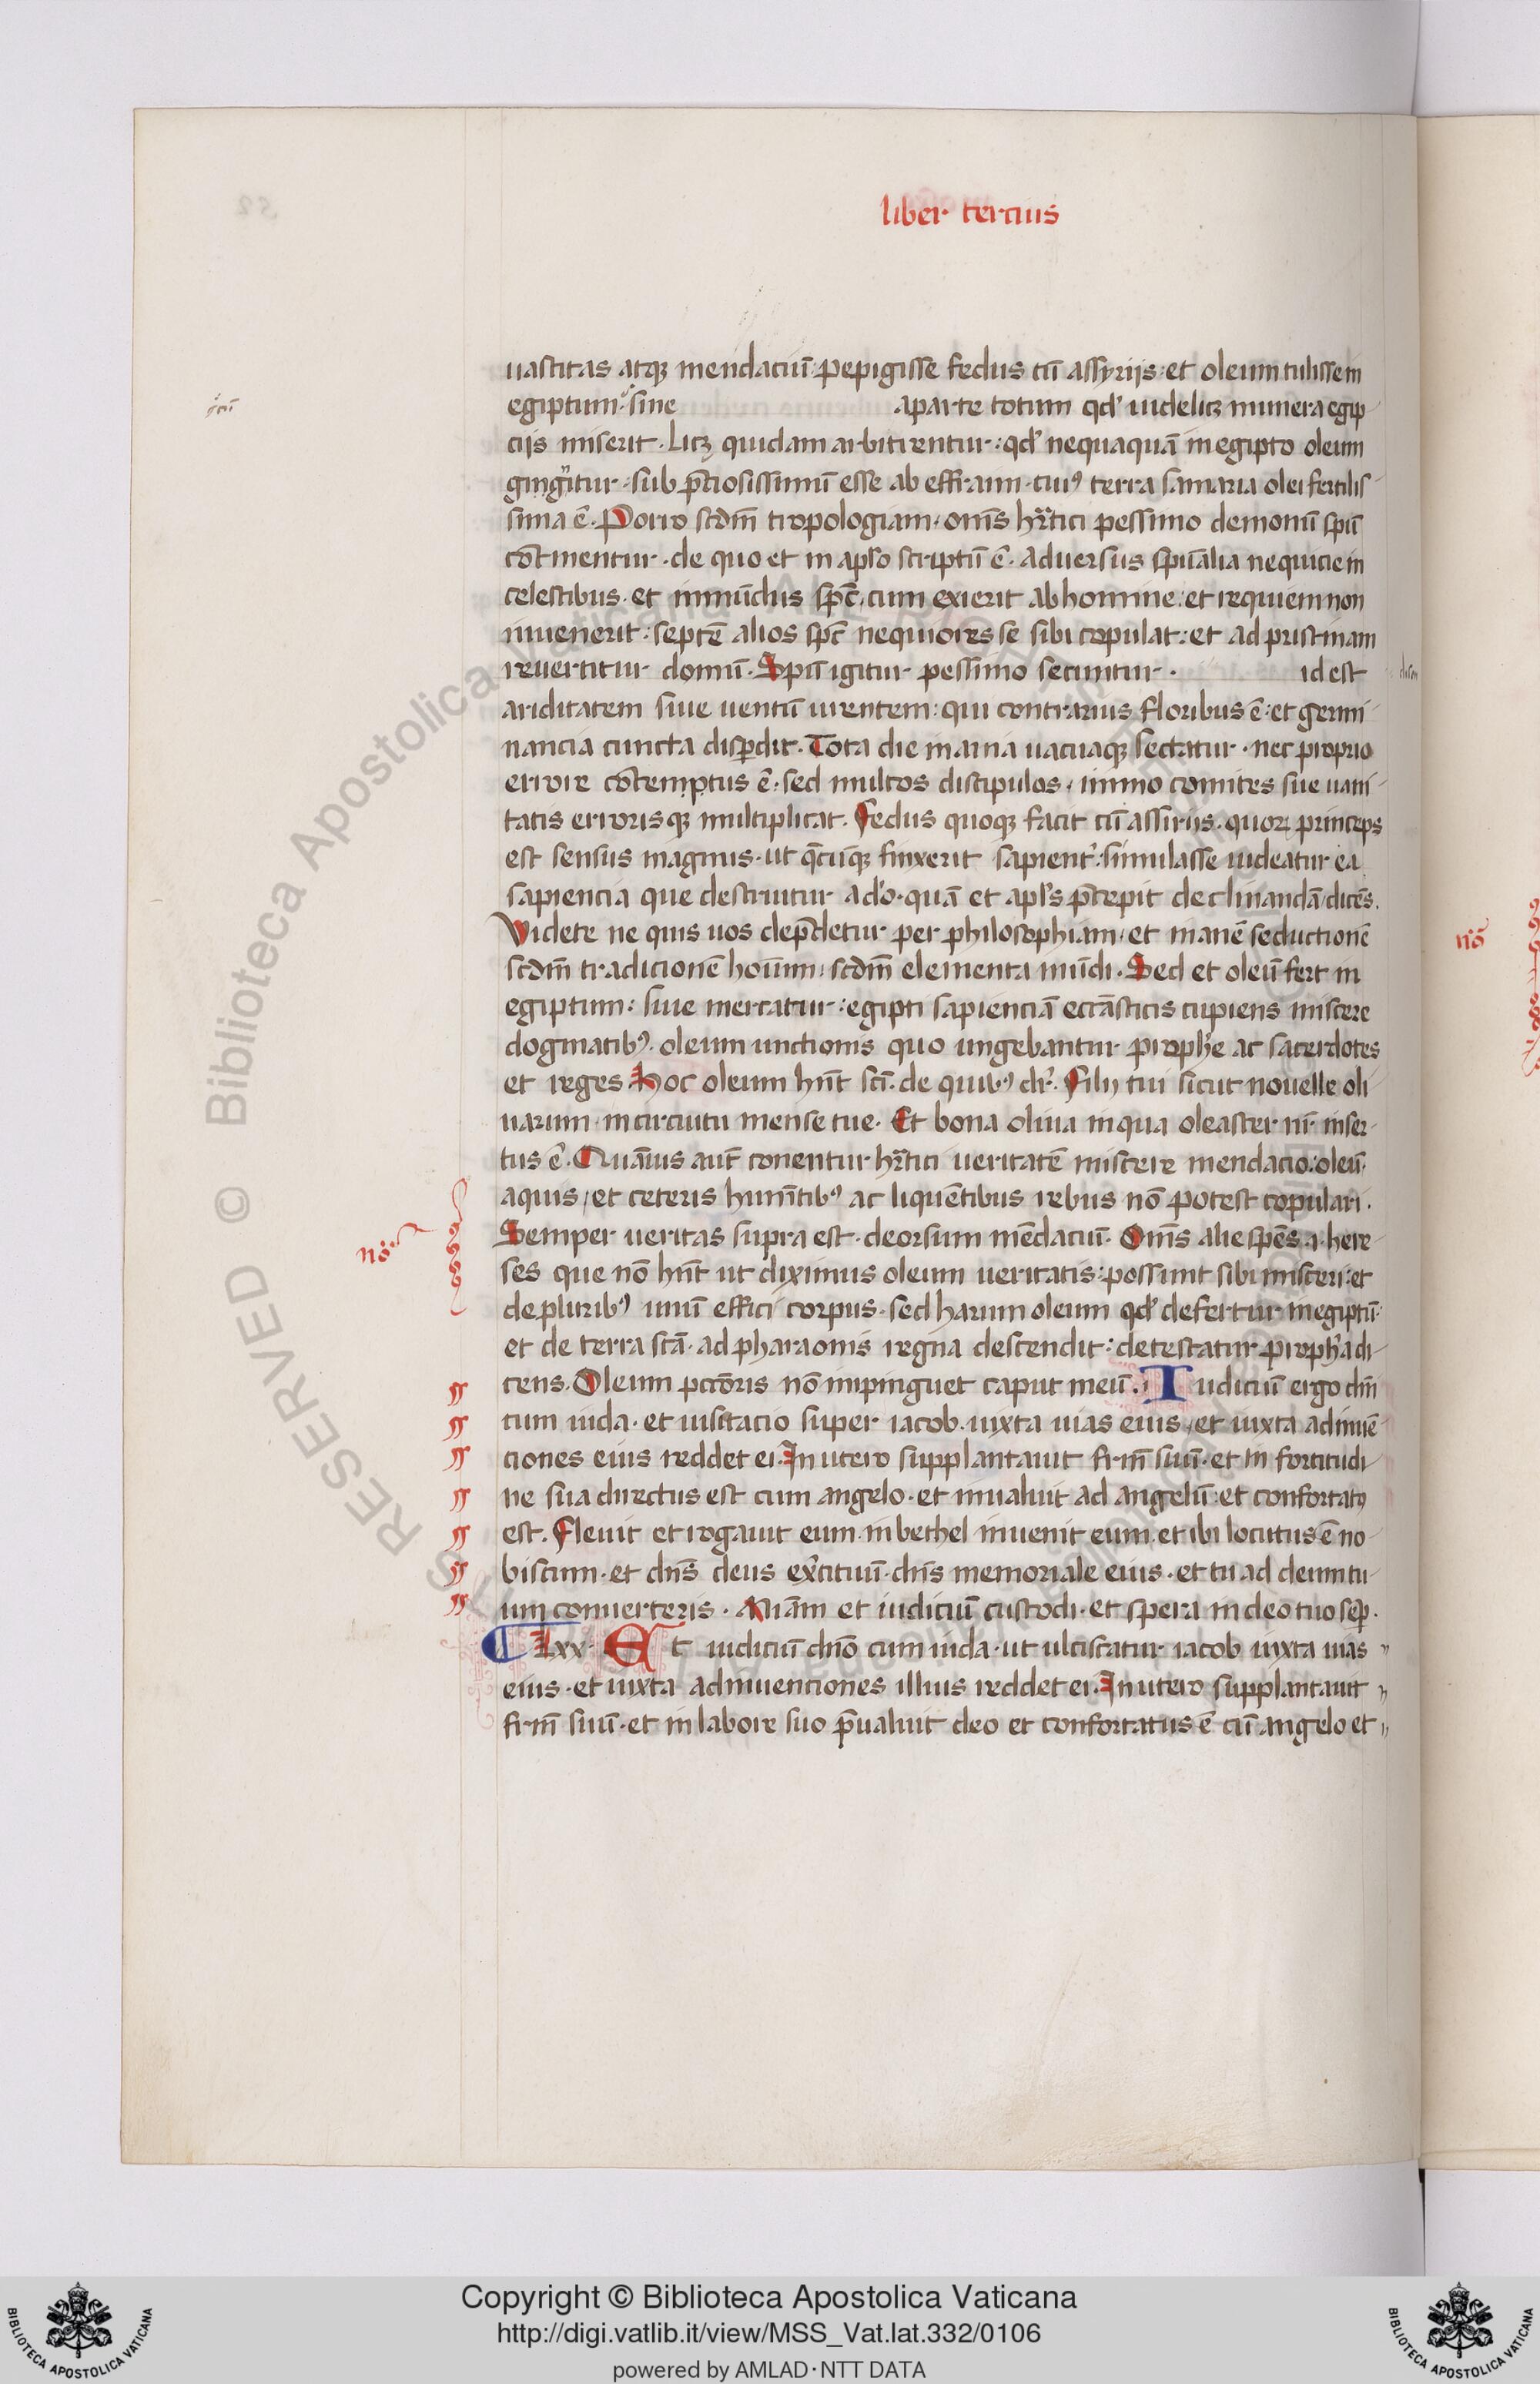 liber tercius
uastitas atqȝ mendaciū: pepigisse fedus cū assyrijs: et oleum tulisse in
egiptum· siue aparte totum qd' uidelicȝ munera egip
cijs miserit· licȝ quidam arbitrentur: qd' nequaquā in egipto oleum
gingitur· sub p̄ciosissimū esse ab effraim· cuiꝰ terra samaria olei fertilis
sima ē· Porro scdm̄ tropologiam· om̄s hr̄tici pessimo demonū spū
cōtinentur· de quo et in apl'o scriptū ē· aduersus spūalia nequicie in
celestibus· et inmūdus sp̄c· cum exierit ab homine: et requiem non
inuenerit: septē alios sp̄c nequiores se sibi copulat: et ad pristinam
reuertitur domū· Spū igitur pessimo secuntur· id est
ariditatem siue uentū urentem: qui contrarius floribus ē: et germi
nancia cuncta disꝑdit· Tota die inania uacuaqȝ sectatur· nec proprio
errore cōtemptus ē· sed multos discipulos· immo comites sue uani
tatis errorisqȝ multiplicat· Fedus quoqȝ facit cū assirijs· quoꝝ princeps
est sensus magnus· ut q̄cūqȝ finxerit sapient': simulasse uideatur ea
sapiencia que destruitur a d'o· quā et apl's p̄cepit declinandā dicēs·
Videte ne quis uos dep̄detur per philosophiam· et inanē seductionē
scdm̄ tradicionē hoīum· scdm̄ elementa mūdi· Sed et oleū fert in
egiptum: siue mercatur: egipti sapienciā eccl̄asticis cupiens miscere
dogmatibꝰ· oleum unctionis quo ungebantur prophe ac sacerdotes
et reges Hoc oleum hn̄t sc̄i· de quibꝰ dr̄· Filij tui sicut nouelle oli
uarum· in circuitu mense tue· Et bona oliua in qua oleaster nr̄ inser
tus ē· Quāuis aut̄ conentur hr̄tici ueritatē miscere mendacio: oleū
aquis· et ceteris humētibꝰ ac liquētibus rebus nō potest copulari·
nō
Semper ueritas supra est· deorsum mēdaciū· Om̄s alie spēs ·i· here
ses que nō hn̄t ut diximus oleum ueritatis: possunt sibi misceri: et
de pluribꝰ unū effici corpus· sed harum oleum qd' defertur in egiptū
et de terra sc̄a· ad pharaonis regna descendit: detestatur proph'a di
cens· Oleum pcc̄oris nō impinguet caput meū· Iudiciū ergo dn̄i
cum iuda· et uisitacio super iacob· iuxta uias eius· et iuxta adinuē
ciones eius reddet ei· In utero supplantauit fr̄m suū· et in fortitudi
ne sua directus est cum angelo· et inualuit ad angelū: et confortatꝰ
est· Fleuit et rogauit eum· in bethel inuenit eum· et ibi locutus ē no
biscum· et dn̄s deus ex'cituū· dn̄s memoriale eius· et tu ad deum tu
um conuerteris· Mīam et iudiciū custodi· et spera in deo tuo seꝑ·
lxx· Et iudiciū dn̄o cum iuda· ut ulciscatur iacob iuxta uias
eius· et iuxta adinuenciones illius reddet ei· In utero supplantauit
fr̄m suū· et in labore suo p̄ualuit deo et confortatus ē cū angelo et
nō
Copyright © Biblioteca Apostolica Vaticana
http://digi.vatlib.it/view/MSS_Vat.lat.332/0106
powered by AMLAD·NTT DATA